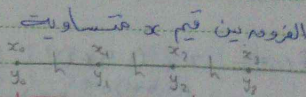 الفروق بين قيم x متساوية
x₀ x₁ x₂ x₃
h h h
y₀ y₁ y₂ y₃